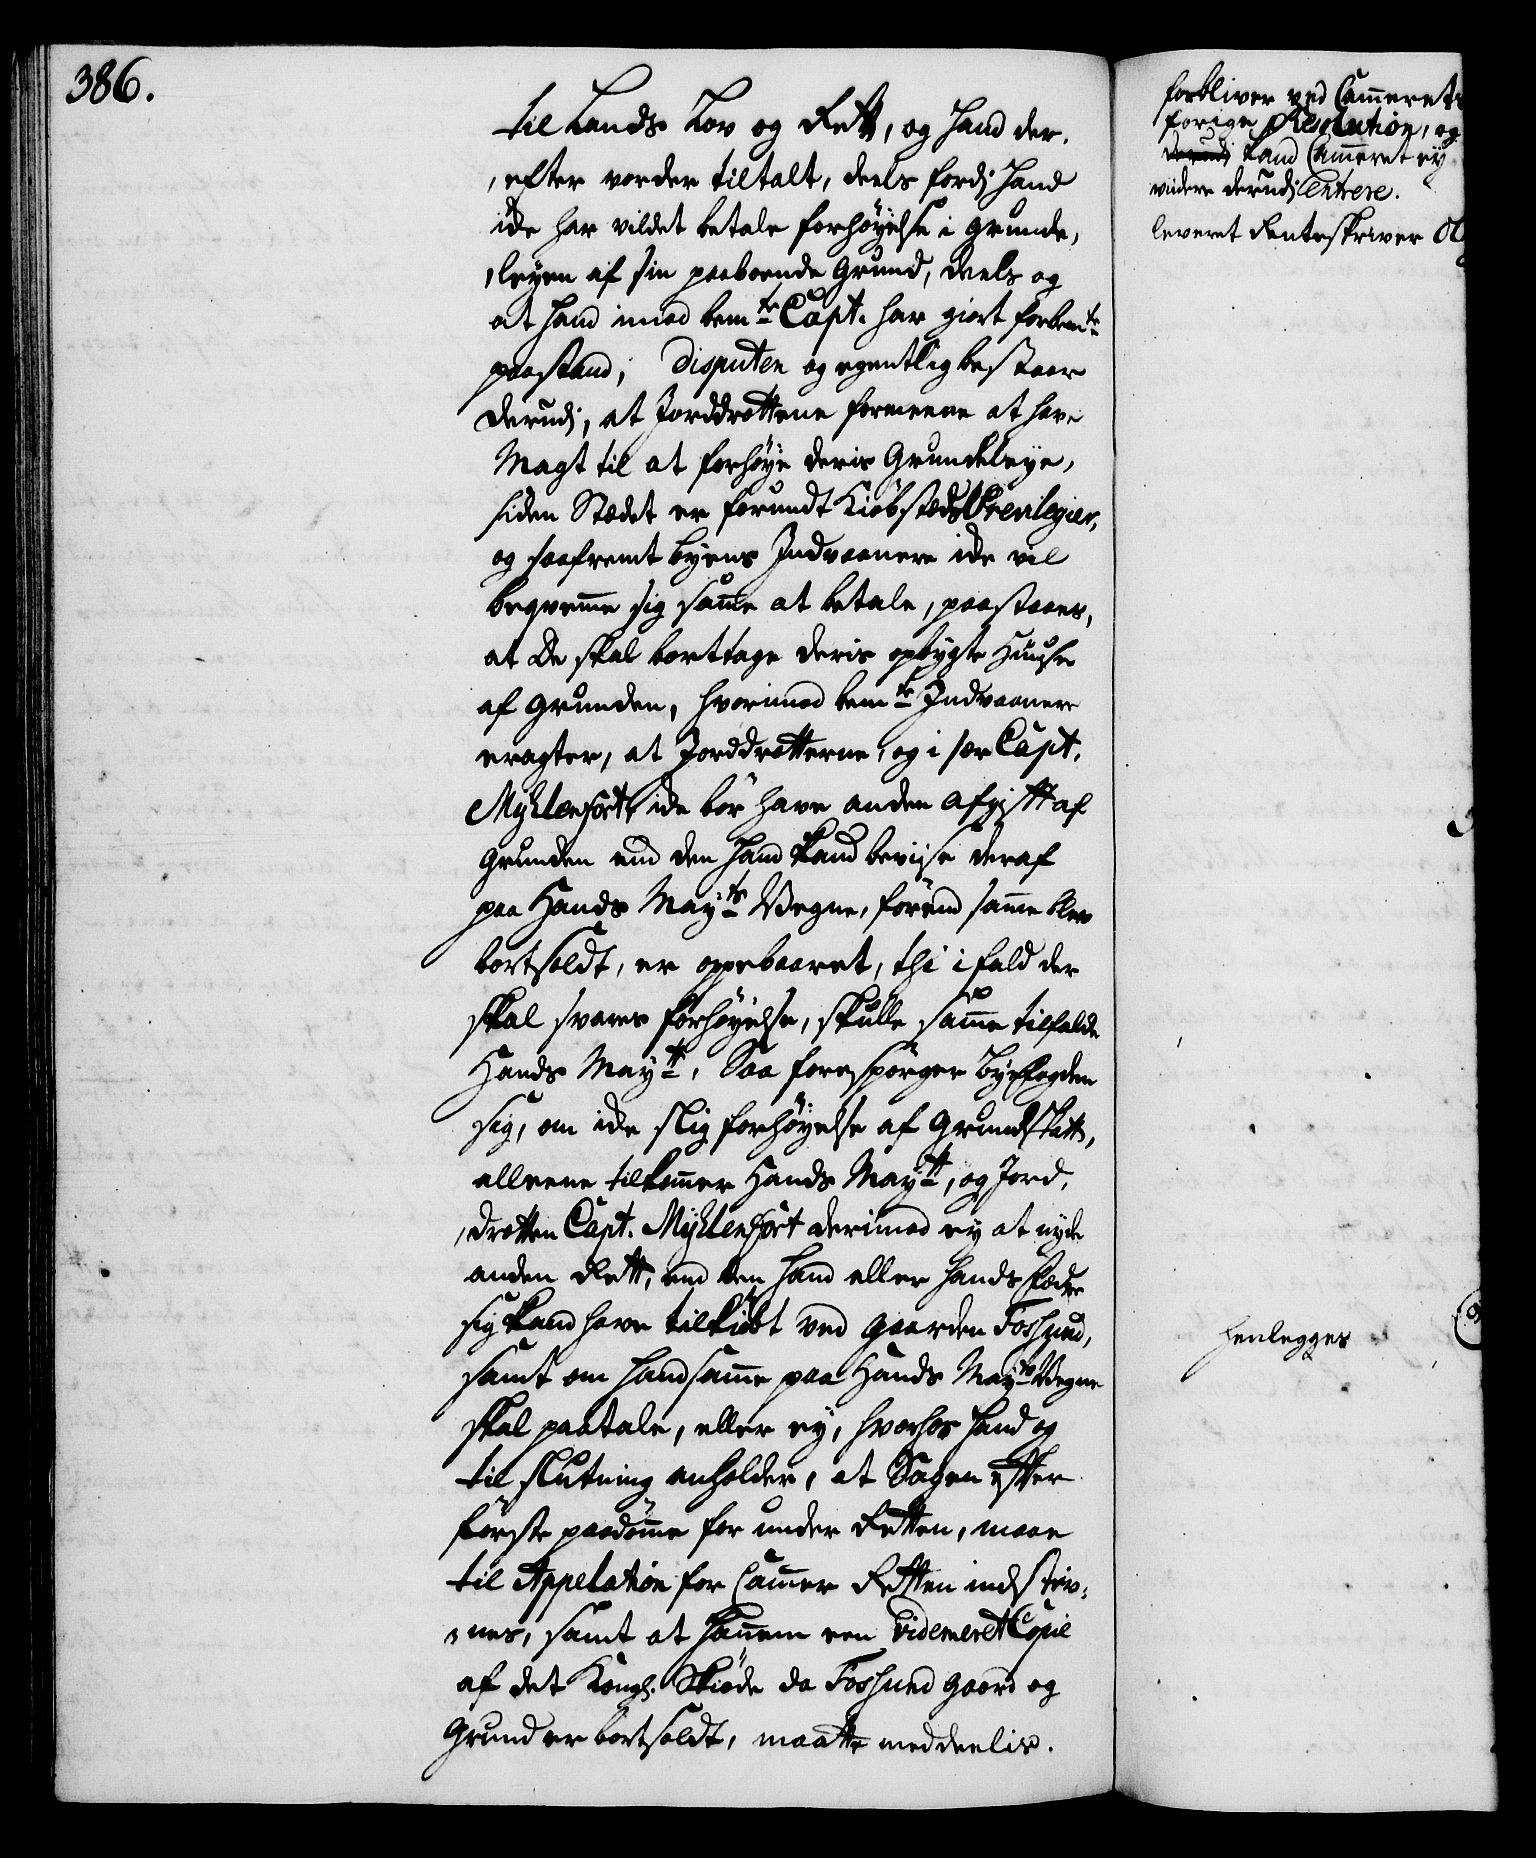 386.
til Lands Lov og Rett, og hand der,
,efter vorder tiltalt, deels fordj hand
icke har vildet betale forhøyelse i Grunde,
,leyen af sin paaboende Grund, deels og
at hand imod bemte Capt. har giort forbemte
paastand; Disputen og egentlig bestaar
derudj, at Jorddrottene formeene at have
Magt til at forhøye deris Grundeleye,
siden Stædet er forundt Kiøbstæds Previlegier,
og saafremt byens Indvaanere icke vil
beqvemme sig samme at betale, paastaaes,
at De skal borttage deris opbygte Huuse
af Grunden, hvorimod bemte Indvaanere
eragter, at Jorddrotterne, og i sær Capt.
Myhlenphort, icke bør have anden Afgift af
Grunden end den hand kand bevise deraf
paa Hands Mayts Vegne, førend samme blev
bortsoldt, er oppebaaret, thi ifald der
skal svares forhøyelse, skulle samme tilfalde
Hands Maytt, Saa forespørger byefogden
sig, om icke slig forhøyelse af Grundskatt,
alleene tilkommer Hands Maytt, og Jord,
,drotten Capt. Myhlenphort derimod ey at nyde
anden Rett, end den hand eller hands Fædre
sig kand have tilkiøbt ved gaarden Foshund,
samt om hand samme paa Hands Mayts Vegne
skal paatale, eller ey, hvorhos hand og
til slutning anholder, at Sagen efter
første paadømme for under Retten, maae
til Appelation for Cammer Retten indstev,
,nes, samt at hannem een Videmeret Copie
af det Kongl. Skiøde da Foshund gaard og
Grund er bortsoldt, maatte meddeelis.
forbliver ved Cammerets
forige Resolution, og
kand Cammeret ey
viidere derudj Entrere.
leveret Renteskriver
henlegges